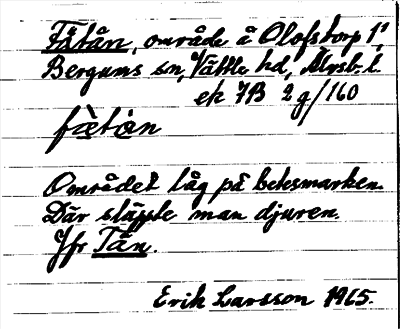 Fåtån, område å Olofstorp 1¹
Bergums sn, Vättle hd, Älvsb. l.
ek 7B 2g/160
fåtån
Området låg på betesmarken.
Där släppte man djuren.
Jfr Tån.
Erik Larsson 1965.